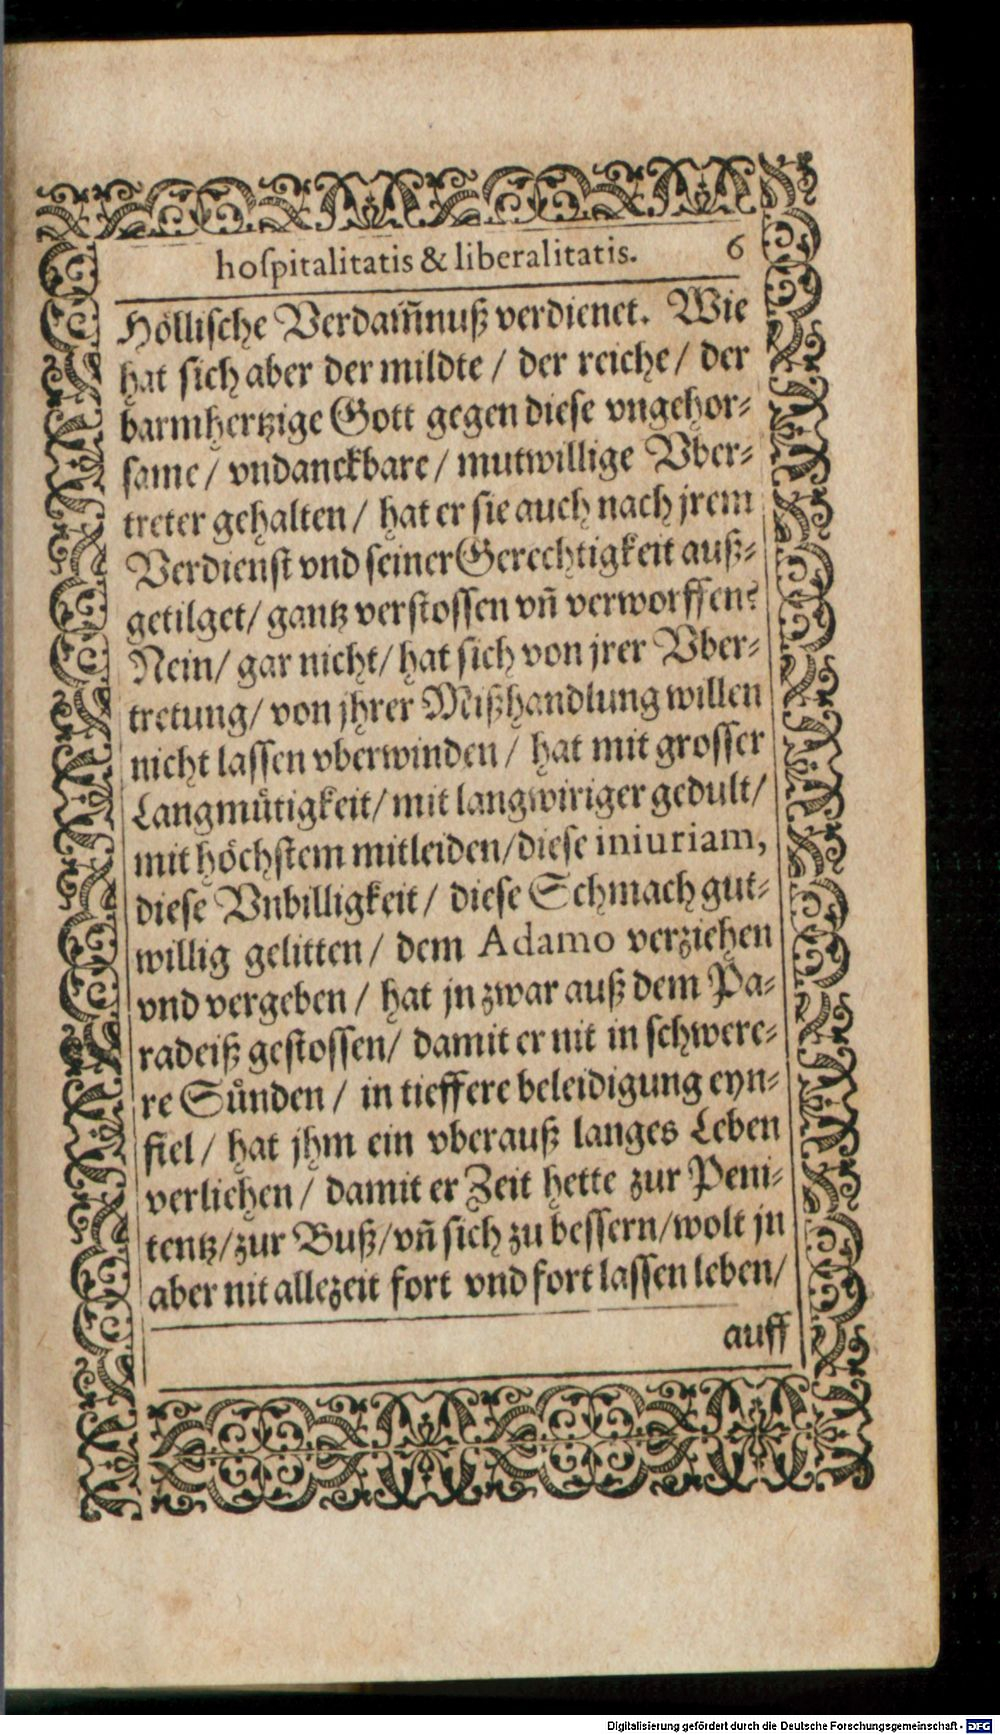 hoſpitalitatis & liberalitatis. 6
Hoͤlliſche Verdam̄nuß verdienet. Wie
hat ſich aber der mildte / der reiche / der
barmhertzige Gott gegen dieſe vngehor⸗
ſame / vndanckbare / mutwillige Vber⸗
treter gehalten / hat er ſie auch nach jrem
Verdienſt vnd ſeiner Gerechtigkeit auß⸗
getilget / gantz verſtoſſen vn̄ verworffen?
Nein / gar nicht / hat ſich von jrer Vber⸗
tretung / von jhrer Mißhandlung willen
nicht laſſen vberwinden / hat mit groſſer
Langmuͤtigkeit / mit langwiriger gedult /
mit hoͤchſtem mitleiden / dieſe iniuriam,
dieſe Vnbilligkeit / dieſe Schmach gut⸗
willig gelitten / dem Adamo verziehen
vnd vergeben / hat jn zwar auß dem Pa⸗
radeiß geſtoſſen / damit er nit in ſchwere⸗
re Suͤnden / in tieffere beleidigung eyn⸗
fiel / hat jhm ein vberauß langes Leben
verliehen / damit er Zeit hette zur Peni⸗
tentz / zur Buß / vn̄ ſich zu beſſern / wolt jn
aber nit allezeit fort vnd fort laſſen leben /
auff
Digitalisierung gefördert durch die Deutsche Forschungsgemeinschaft - DFG